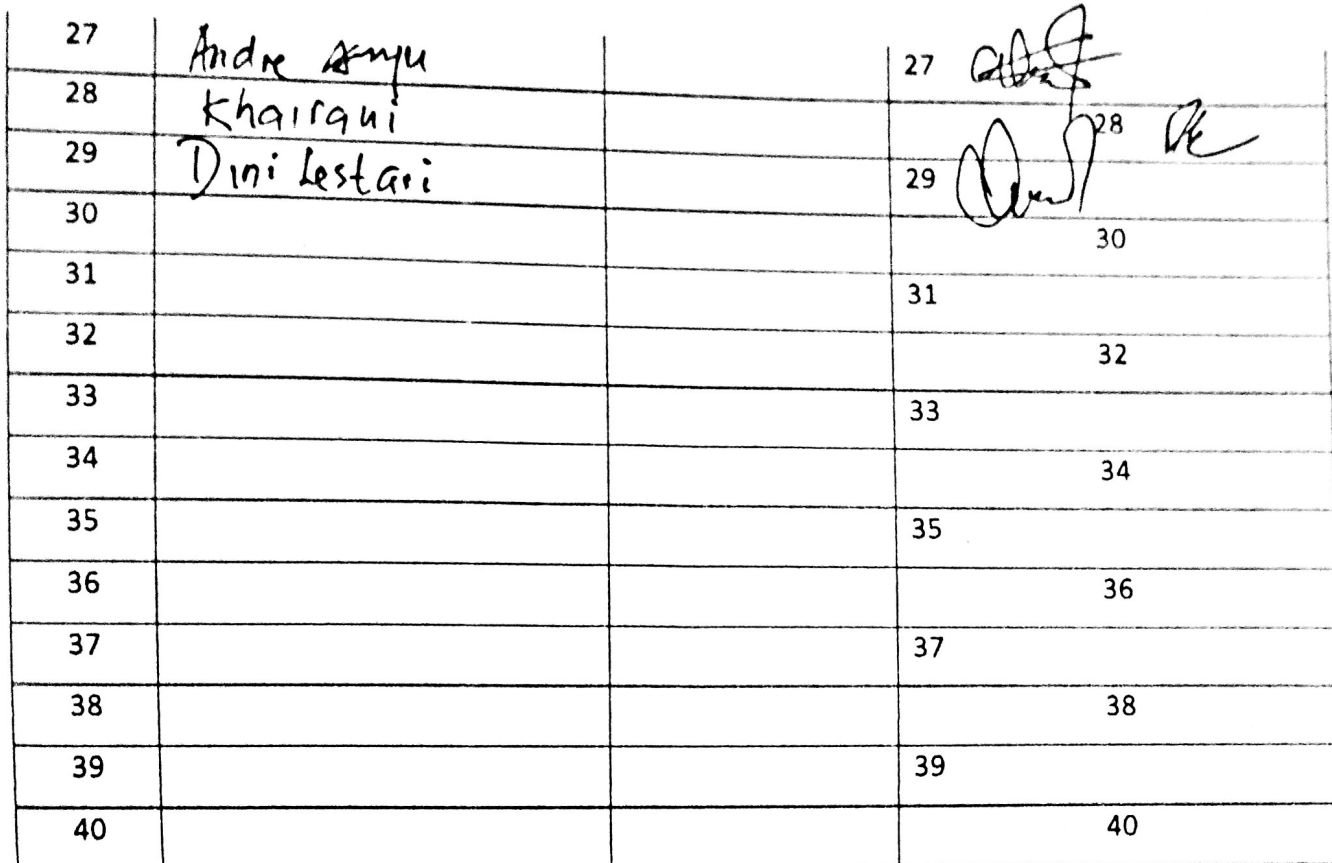 27 Andre Anju 27
28 Khairani 28
29 Dini Lestari 29
30 30
31 31
32 32
33 33
34 34
35 35
36 36
37 37
38 38
39 39
40 40